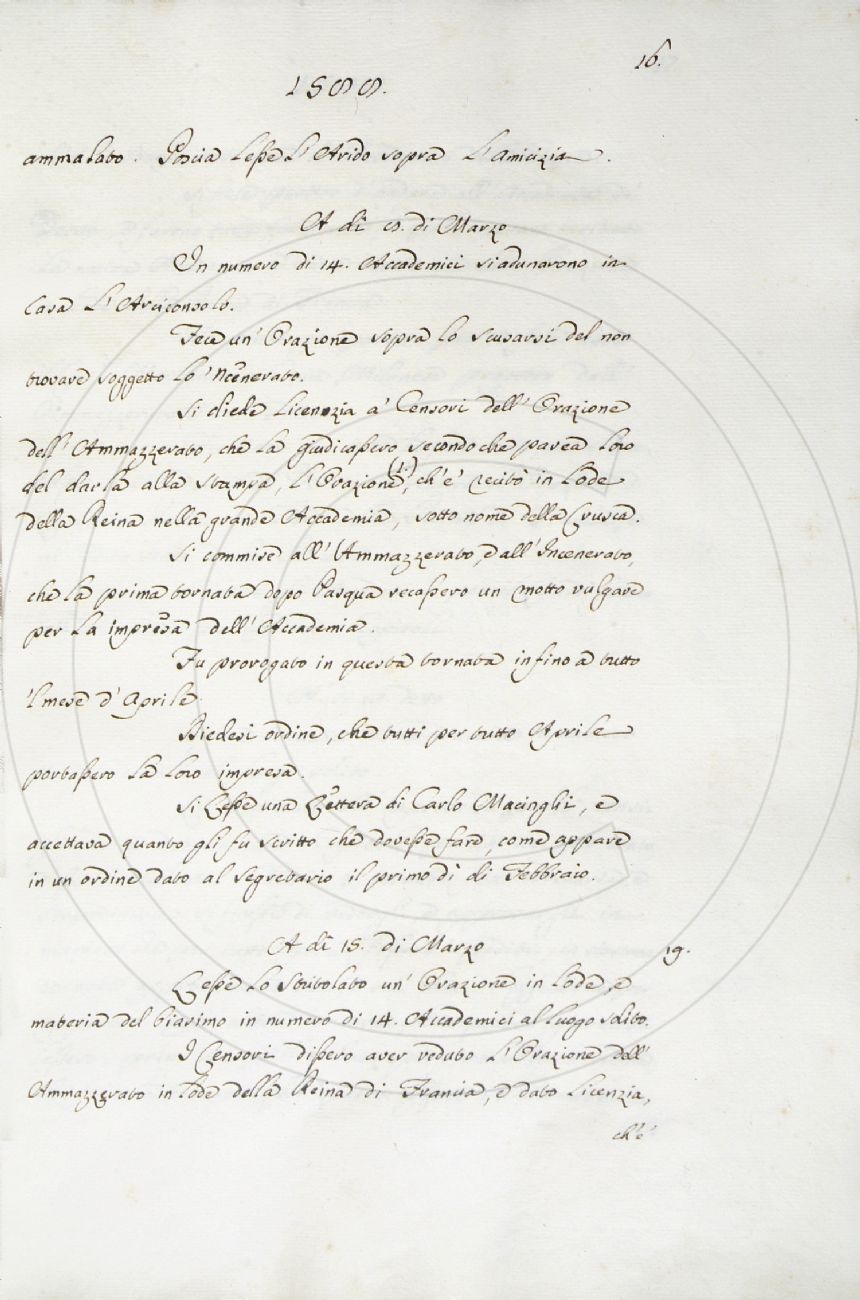 16.
1588.
ammalato. Poscia lesse l'Arido sopra l'amicizia.
A dì 9. di Marzo
In numero di 14. Accademici si adunarono in
casa l'Arciconsolo.
Fece un' Orazione sopra lo scusarsi del non
trovare soggetto lo 'ncenerato.
Si diede licenzia a' Censori dell' Orazione
dell' Ammazzerato, che la giudicassero secondo che parea loro
del darla alla stampa, l'Orazione (1.), ch'e' recitò in lode
della Reina nella grande Accademia, sotto nome della Crusca.
Si commise all' Ammazzerato, e all' Incenerato,
che la prima tornata dopo Pasqua recassero un motto vulgare
per la impresa dell' Accademia.
Fu prorogato in questa tornata infino a tutto
'l mese d' Aprile.
Diedesi ordine, che tutti per tutto Aprile
portassero la loro impresa.
Si lesse una Lettera di Carlo Macinghi, e
accettava quanto gli fu scritto che dovesse fare, come appare
in un ordine dato al Segretario il primo dì di Febbraio.
A dì 15. di Marzo
19.
Lesse lo Stritolato un' Orazione in lode, e
materia del biasimo in numero di 14. Accademici al luogo solito.
I Censori dissero aver veduto l'Orazione dell'
Ammazzerato in lode della Reina di Francia, e dato licenzia,
ch'e'